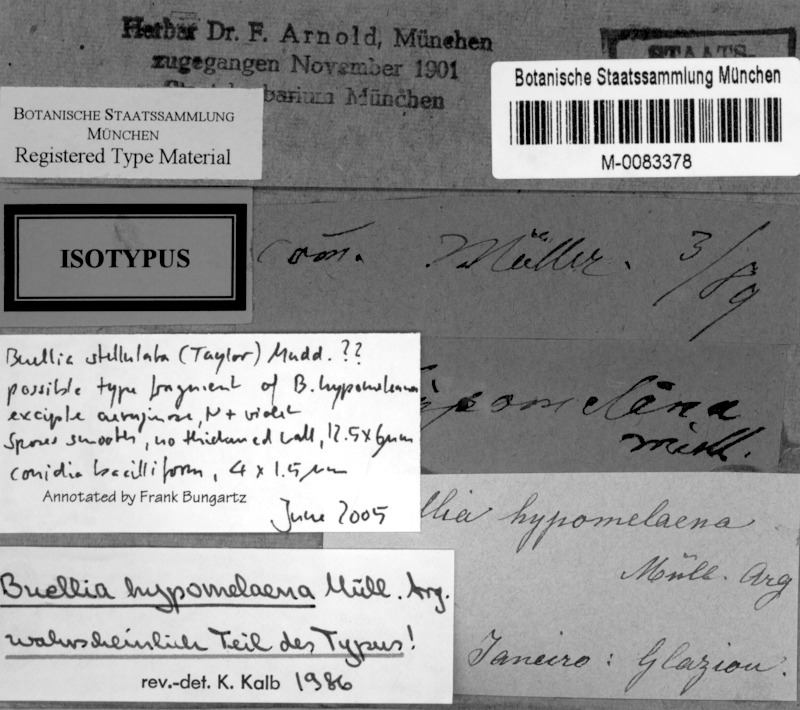 Herbar Dr. F. Arnold, München
zugegangen November 1901
barium München
STAATS-
Botanische Staatssammlung München
M-0083378
BOTANISCHE STAATSSAMMLUNG
MÜNCHEN
Registered Type Material
ISOTYPUS
com. Müller. 3/89
Buellia stellulata (Taylor) Mudd. ??
possible type fragment of B. hypomelaena
exciple aeruginose, N+ violet
spores smooth, no thickened wall, 12.5 x 6 µm
conidia bacilliform, 4 x 1.5 µm
Annotated by Frank Bungartz
June 2005
ypomelaena
müll.
llia hypomelaena
Müll. Arg
Janeiro: Glaziou.
Buellia hypomelaena Müll. Arg.
wahrscheinlich Teil des Typus!
rev.-det. K. Kalb 1986